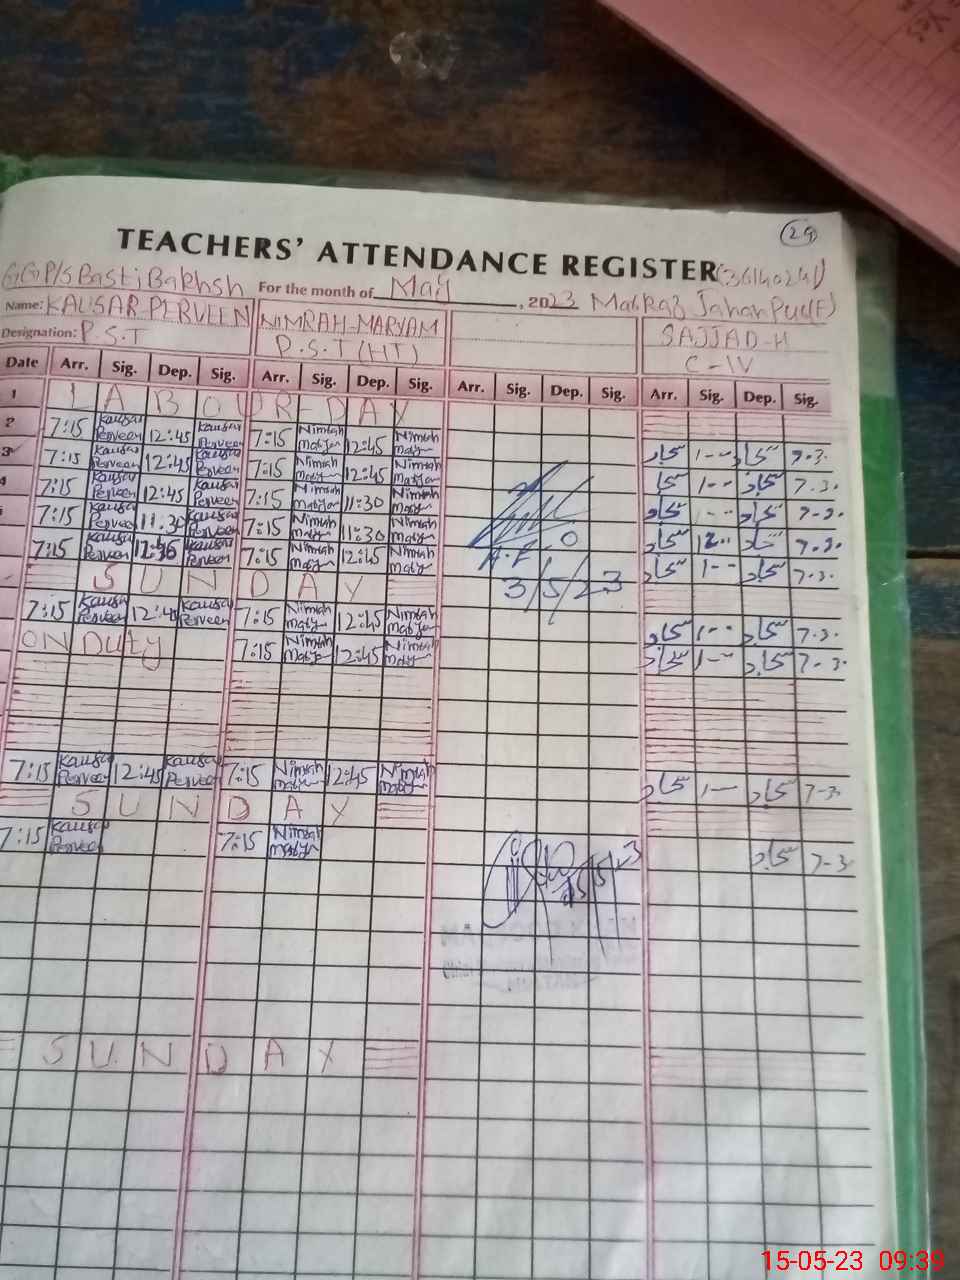 29
TEACHERS' ATTENDANCE REGISTER (36140241)
GGP/S Basti Bakhsh For the month of May, 2023 Markaz Jahan Pur(F)
Name: KAUSAR-PERVEEN NIMRAH-MARYAM SAJJAD-H
Designation: P.S.T P.S.T (HT) C-IV
Date Arr. Sig. Dep. Sig. Arr. Sig. Dep. Sig. Arr. Sig. Dep. Sig. Arr. Sig. Dep. Sig.
1 LABOUR-DAY
2 7:15 Kausar Perveen 12:45 Kausar Perveen 7:15 Nimrah Maryam 12:45 Nimrah Maryam
3 7:15 Kausar Perveen 12:45 Kausar Perveen 7:15 Nimrah Maryam 12:45 Nimrah Maryam سجاد 1-- سجاد 7-3.
4 7:15 Kausar Perveen 12:45 Kausar Perveen 7:15 Nimrah Maryam 11:30 Nimrah Maryam سجاد 1-- سجاد 7-3.
7:15 Kausar Perveen 11:30 Kausar Perveen 7:15 Nimrah Maryam 11:30 Nimrah Maryam سجاد 1-- سجاد 7-3.
7:15 Kausar Perveen Kausar Perveen 7:15 Nimrah Maryam 12:45 Nimrah Maryam سجاد 12-- سجاد 7-3.
A.E.O
سجاد 1-- سجاد 7-3.
SUNDAY
3/5/23
7:15 Kausar Perveen 12:45 Kausar Perveen 7:15 Nimrah Maryam 12:45 Nimrah Maryam سجاد 1-- سجاد 7-3.
ON Duty 7:15 Nimrah Maryam 12:45 Nimrah Maryam سجاد 1-- سجاد 7-3.
7:15 Kausar Perveen 12:45 Kausar Perveen 7:15 Nimrah Maryam 12:45 Nimrah Maryam سجاد 1-- سجاد 7-3.
SUNDAY
7:15 Kausar Perveen 7:15 Nimrah Maryam سجاد 7-3
15/5/23
SUNDAY
15-05-23 09:39